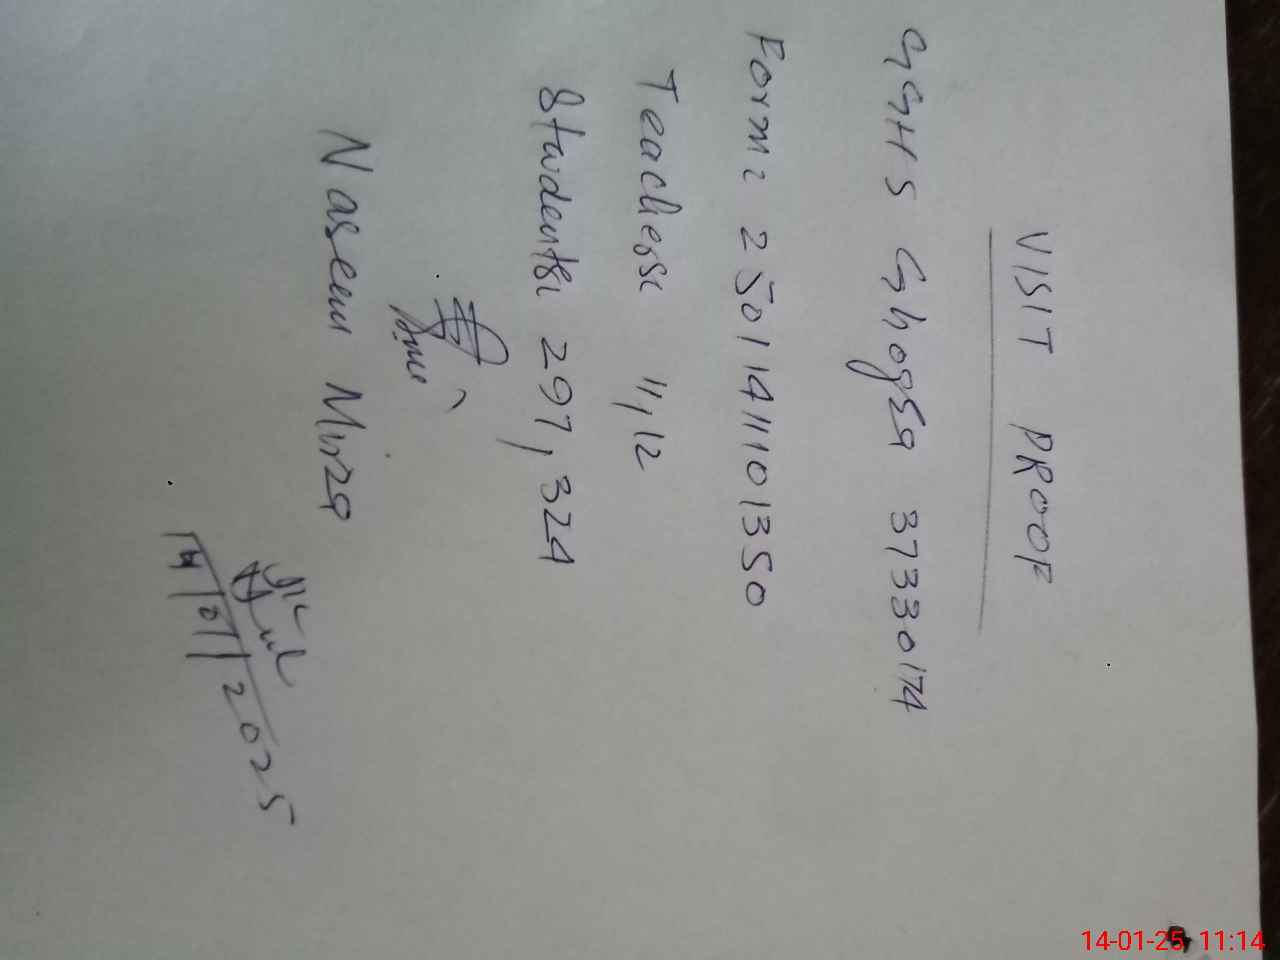 VISIT PROOF
GGHS Ghogza 37330174
Form: 2501141101350
Teachers: 11,12
Students: 297,324
Naseem Mirza
14/01/2025
14-01-25 11:14